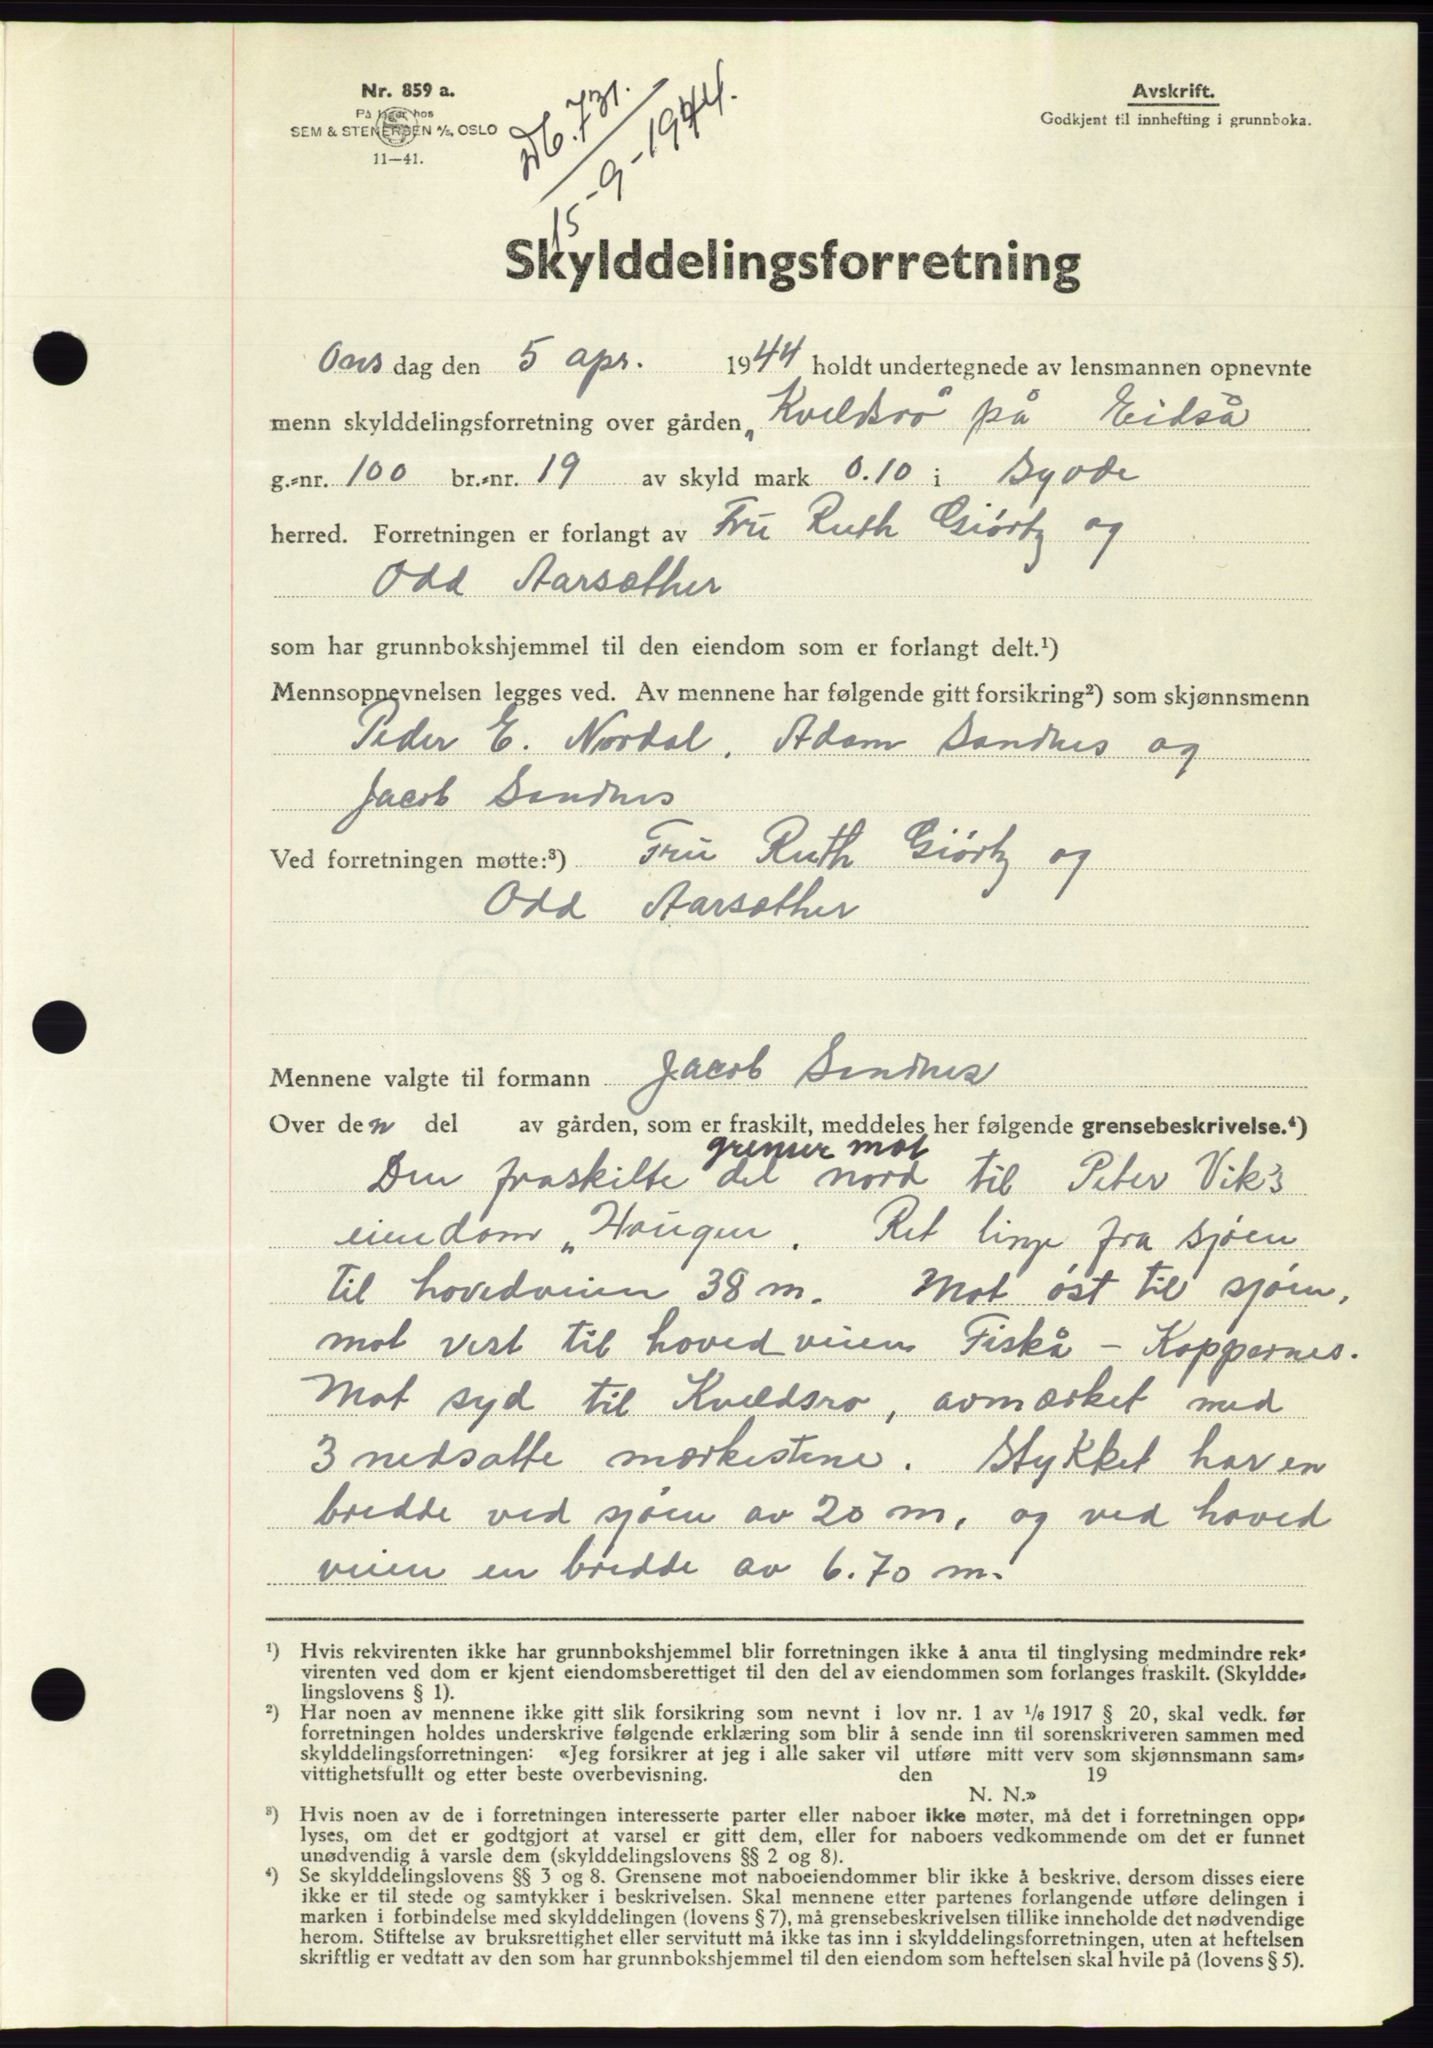 Nr. 859 a.
På lager hos
SEM & STENERSEN A/S, OSLO
11—41.
Db. 731.
15-9-1944.
Avskrift.
Godkjent til innhefting i grunnboka.
Skylddelingsforretning
Ons dag den 5 apr. 1944 holdt undertegnede av lensmannen opnevnte
menn skylddelingsforretning over gården „Kveldsro på Eidså
g.-nr. 100 br.-nr. 19 av skyld mark 0.10 i Syvde
herred. Forretningen er forlangt av Fru Ruth Giørtz og
Odd Aarsæther
som har grunnbokshjemmel til den eiendom som er forlangt delt.¹)
Mennsopnevnelsen legges ved. Av mennene har følgende gitt forsikring²) som skjønnsmenn
Peder E. Nordal, Adam Sandnes og
Jacob Sandnes
Ved forretningen møtte:³) Fru Ruth Giørtz og
Odd Aarsæther
Mennene valgte til formann Jacob Sandnes
Over den del av gården, som er fraskilt, meddeles her følgende grensebeskrivelse.⁴)
grenser mot
Den fraskilte del nord til Peter Vik's
eiendom „Haugen. Ret linje fra sjøen
til hovedveien 38 m. Mot øst til sjøen,
mot vest til hovedveien Fiskå – Koppernes.
Mot syd til Kveldsro, avmærket med
3 nedsatte mærkestene. Stykket har en
bredde ved sjøen av 20 m, og ved hoved
veien en bredde av 6.70 m.
¹) Hvis rekvirenten ikke har grunnbokshjemmel blir forretningen ikke å anta til tinglysing medmindre rek-
virenten ved dom er kjent eiendomsberettiget til den del av eiendommen som forlanges fraskilt. (Skyldde-
lingslovens § 1).
²) Har noen av mennene ikke gitt slik forsikring som nevnt i lov nr. 1 av 1/6 1917 § 20, skal vedk. før
forretningen holdes underskrive følgende erklæring som blir å sende inn til sorenskriveren sammen med
skylddelingsforretningen: «Jeg forsikrer at jeg i alle saker vil utføre mitt verv som skjønnsmann sam-
vittighetsfullt og etter beste overbevisning. den 19
N. N.»
³) Hvis noen av de i forretningen interesserte parter eller naboer ikke møter, må det i forretningen opp-
lyses, om det er godtgjort at varsel er gitt dem, eller for naboers vedkommende om det er funnet
unødvendig å varsle dem (skylddelingslovens §§ 2 og 8).
⁴) Se skylddelingslovens §§ 3 og 8. Grensene mot naboeiendommer blir ikke å beskrive, dersom disses eiere
ikke er til stede og samtykker i beskrivelsen. Skal mennene etter partenes forlangende utføre delingen i
marken i forbindelse med skylddelingen (lovens § 7), må grensebeskrivelsen tillike inneholde det nødvendige
herom. Stiftelse av bruksrettighet eller servitutt må ikke tas inn i skylddelingsforretningen, uten at heftelsen
skriftlig er vedtatt av den som har grunnbokshjemmel til den eiendom som heftelsen skal hvile på (lovens § 5).